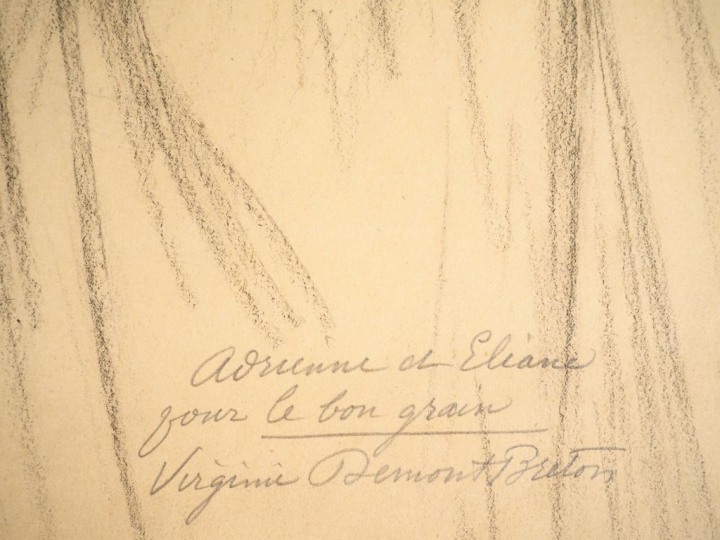 Adrienne et Eliane
pour le bon grain
Virginie Demont Breton